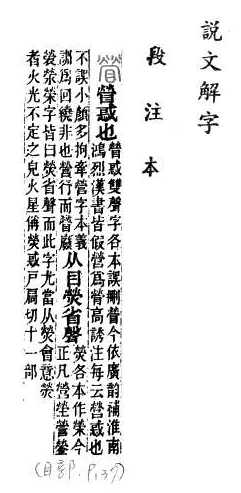 說文解字
段注本
䁝惑也
䁝惑雙聲字各本誤刪䁝今依廣韵補淮南
鴻烈漢書皆假營爲䁝高誘注每云營惑也
不誤小顏多拘牽營字本義
謂爲回繞非也營行而䁝廢
从目熒省聲
熒各本作榮今
正凡營塋罃鎣
褮榮字皆曰熒省聲而此字尤當从熒會意熒
者火光不定之皃火星偁熒惑戶扃切十一部
(目部.P.137)